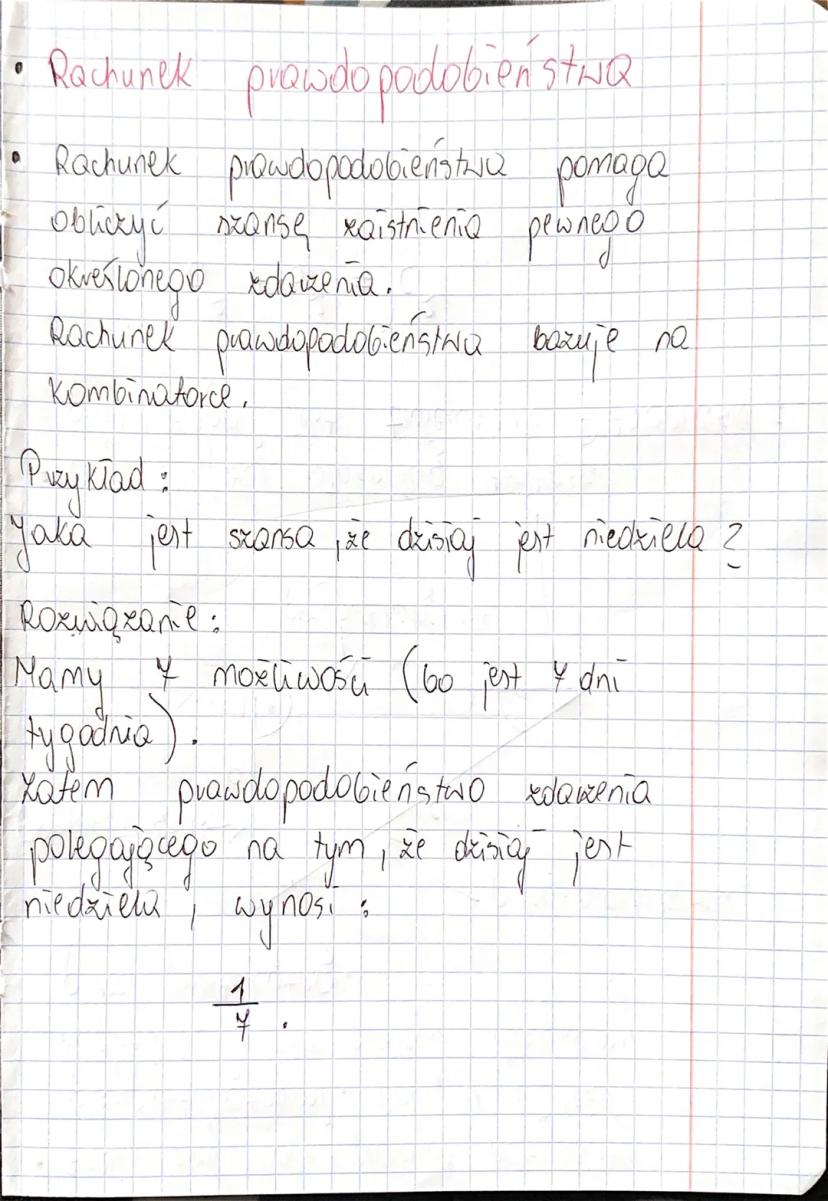 • Rachunek prawdopodobieństwa
• Rachunek prawdopodobieństwa pomaga
obliczyć szansę zaistnienia pewnego
określonego zdarzenia.
Rachunek prawdopodobieństwa bazuje na
kombinatorce.
Przykład:
Jaka jest szansa, że dzisiaj jest niedziela?
Rozwiązanie:
Mamy 7 możliwości (bo jest 7 dni
tygodnia).
Zatem prawdopodobieństwo zdarzenia
polegającego na tym, że dzisiaj jest
niedziela, wynosi:
1
7.